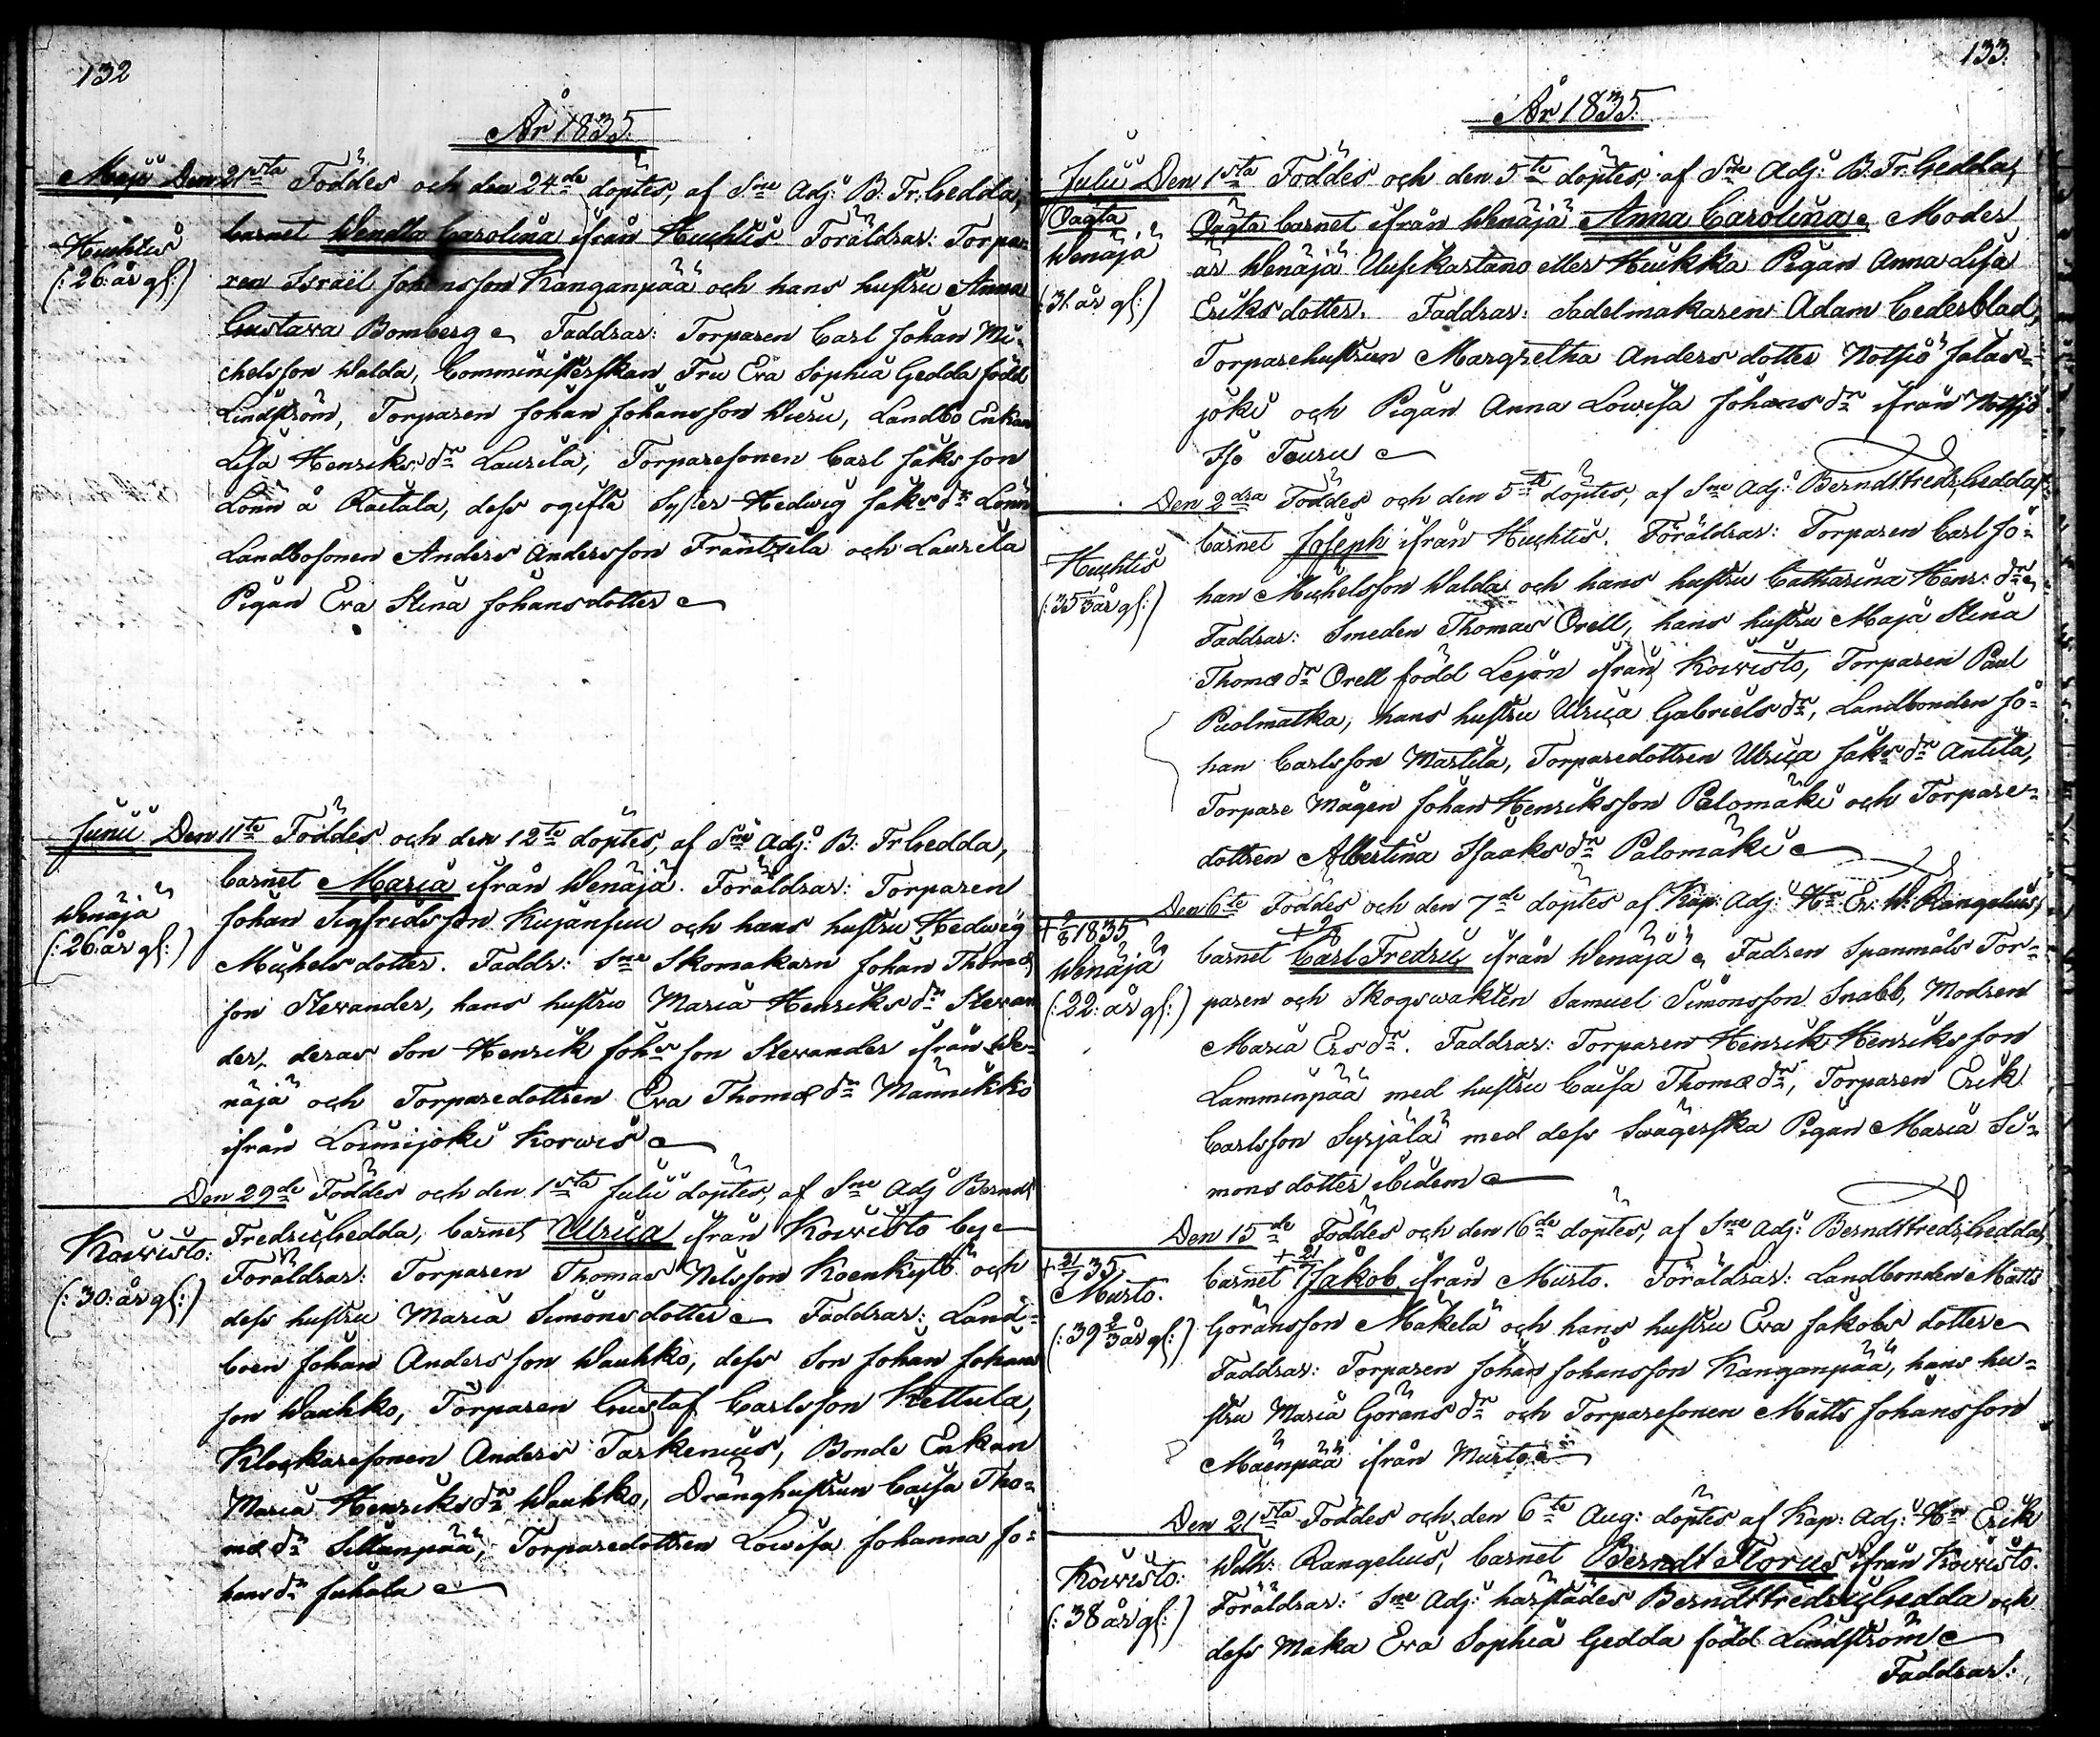 132
År 1835.
Maji Den 21sta Föddes och den 24de döptes, af Sne Adj: B. Fr: Gedda,
Huhtis
(: 26: år gl:)
barnet Wendla Carolina ifrån Huhtis Föräldrar: Torpa-
ren Israël Johansson Kanganpää och hans hustru Anna
Gustava Bomberg Faddrar: Torparen Carl Johan Mi-
chelsson Walda, Comministerskan Fru Eva Sophia Gedda född
Lindström, Torparen Johan Johansson Wieru, Landbo Enkan
Lisa Henriks dr Laurila, Torparesonen Carl Jaksson
Lönn å Raitala, dess ogifta Syster Hedwig Jaks dr Lönn
Landbosonen Anders Andersson Frantzila och Laurila
Pigan Eva Stina Johansdotter
Junii Den 11te Föddes och den 12te döptes, af Sne Adj: B: Fr Gedda,
Wenäjä
(: 26: år gl:)
barnet Maria ifrån Wenäjä. Föräldrar: Torparen
Johan Sigfridsson Kujansuu och hans hustru Hedwig
Michelsdotter. Faddr: Sne Skomakarn Johan Thomæ
son Stevander, hans hustru Maria Henriks dr Stevan
der, deras Son Henrik Johsson Stevander ifrån We-
näjä och Torparedottren Eva Thomæ dr Männikkö
ifrån Loimijoki Korwis
Den 29de Föddes och den 1sta Julii döptes, af Sne Adj Berndt
Koiwisto:
(: 30: år gl:)
Fredric Gedda, barnet Ulrica ifrån Koiwisto by
Föräldrar: Torparen Thomas Nilsson Koenkytö och
dess hustru Maria Simonsdotter Faddrar: Land-
boen Johan Andersson Wauhko, dess Son Johan Johans
son Wauhko, Torparen Gustaf Carlsson Kettula,
Klockaresonen Anders Taskenius, Bonde Enkan
Maria Henriks dr Wauhko, Dränghustrun Caisa Tho-
mæ dr Sillanpää, Torparedottren Lowisa Johanna Jo-
hans dr Juhala
133.
År 1835.
Julii Den 1sta Föddes och den 5te döptes, af Sne Adj: B. Fr. Gedda,
Oägta
Wenäjä
(: 31. år gl:)
Oägta barnet ifrån Wenäjä Anna Carolina Moder
är Wenäjä Uusikartano eller Huikka Pigan Anna Lisa
Eriksdotter. Faddrar: Sadelmakaren Adam Cederblad,
Torparehustrun Margretha Andersdotter Notsjö Jalas-
joki och Pigan Anna Lowisa Johans dr ifrån Notsjö
Iso Teuru
Den 2dra Föddes och den 5te döptes, af Sne Adj: Berndt Fredr: Gedda,
Huhtis
(: 35 1/3 år gl:)
barnet Joseph ifrån Huhtis. Föräldrar: Torparen Carl Jo-
han Michelsson Walda och hans hustru Catharina Henr: dr
Faddrar: Smeden Thomas Orell, hans hustru Maja Stina
Thomæ dr Orell född Lejon ifrån Koiwisto, Torparen Paul
Puolmatka, hans hustru Ulrica Gabriels dr, Landbonden Jo-
han Carlsson Martila, Torparedottren Ulrica Jaks dr Antila,
Torpare Mågen Johan Henriksson Palomäki och Torpare-
dottren Albertina Isaaks dr Palomäki
Den 6te Föddes och den 7de döptes af Kap: Adj: Hr Er: W. Rangelius,
+ 2/8 1835
Wenäjä
(: 22: år gl:)
+ 2/8
barnet Carl Fredric ifrån Wenäjä Fadren Spanmåls Tor-
paren och Skogswakten Samuel Simonsson Snabb, Modren
Maria Ers dr. Faddrar: Torparen Henrik Henriksson
Lamminpää med hustru Caisa Thomæ dr, Torparen Erik
Carlsson Syrjälä med dess Swägerska Pigan Maria Si-
monsdotter ibidem
Den 15de Föddes och den 16de döptes, af Sne Adj: Berndt Fredr: Gedda,
+ 21/7 35
Murto.
(: 39 2/3 år gl:)
+ 21/7
barnet Jakob ifrån Murto. Föräldrar: Landbonden Matts
Göransson Mäkelä och hans hustru Eva Jakobs dotter
Faddrar: Torparen Johan Johansson Kanganpää, hans hu-
stru Maria Görans dr och Torparesonen Matts Johansson
Mäenpää ifrån Murto
Den 21sta Föddes och den 6te Aug: döptes af Kap: Adj: Hr Erik
Koiwisto:
(: 38 år gl:)
Wilh: Rangelius, barnet Berndt Florus ifrån Koiwisto.
Föräldrar: Sne Adj: härstädes Berndt Fredric Gedda och
dess Maka Eva Sophia Gedda född Lindström
Faddrar: